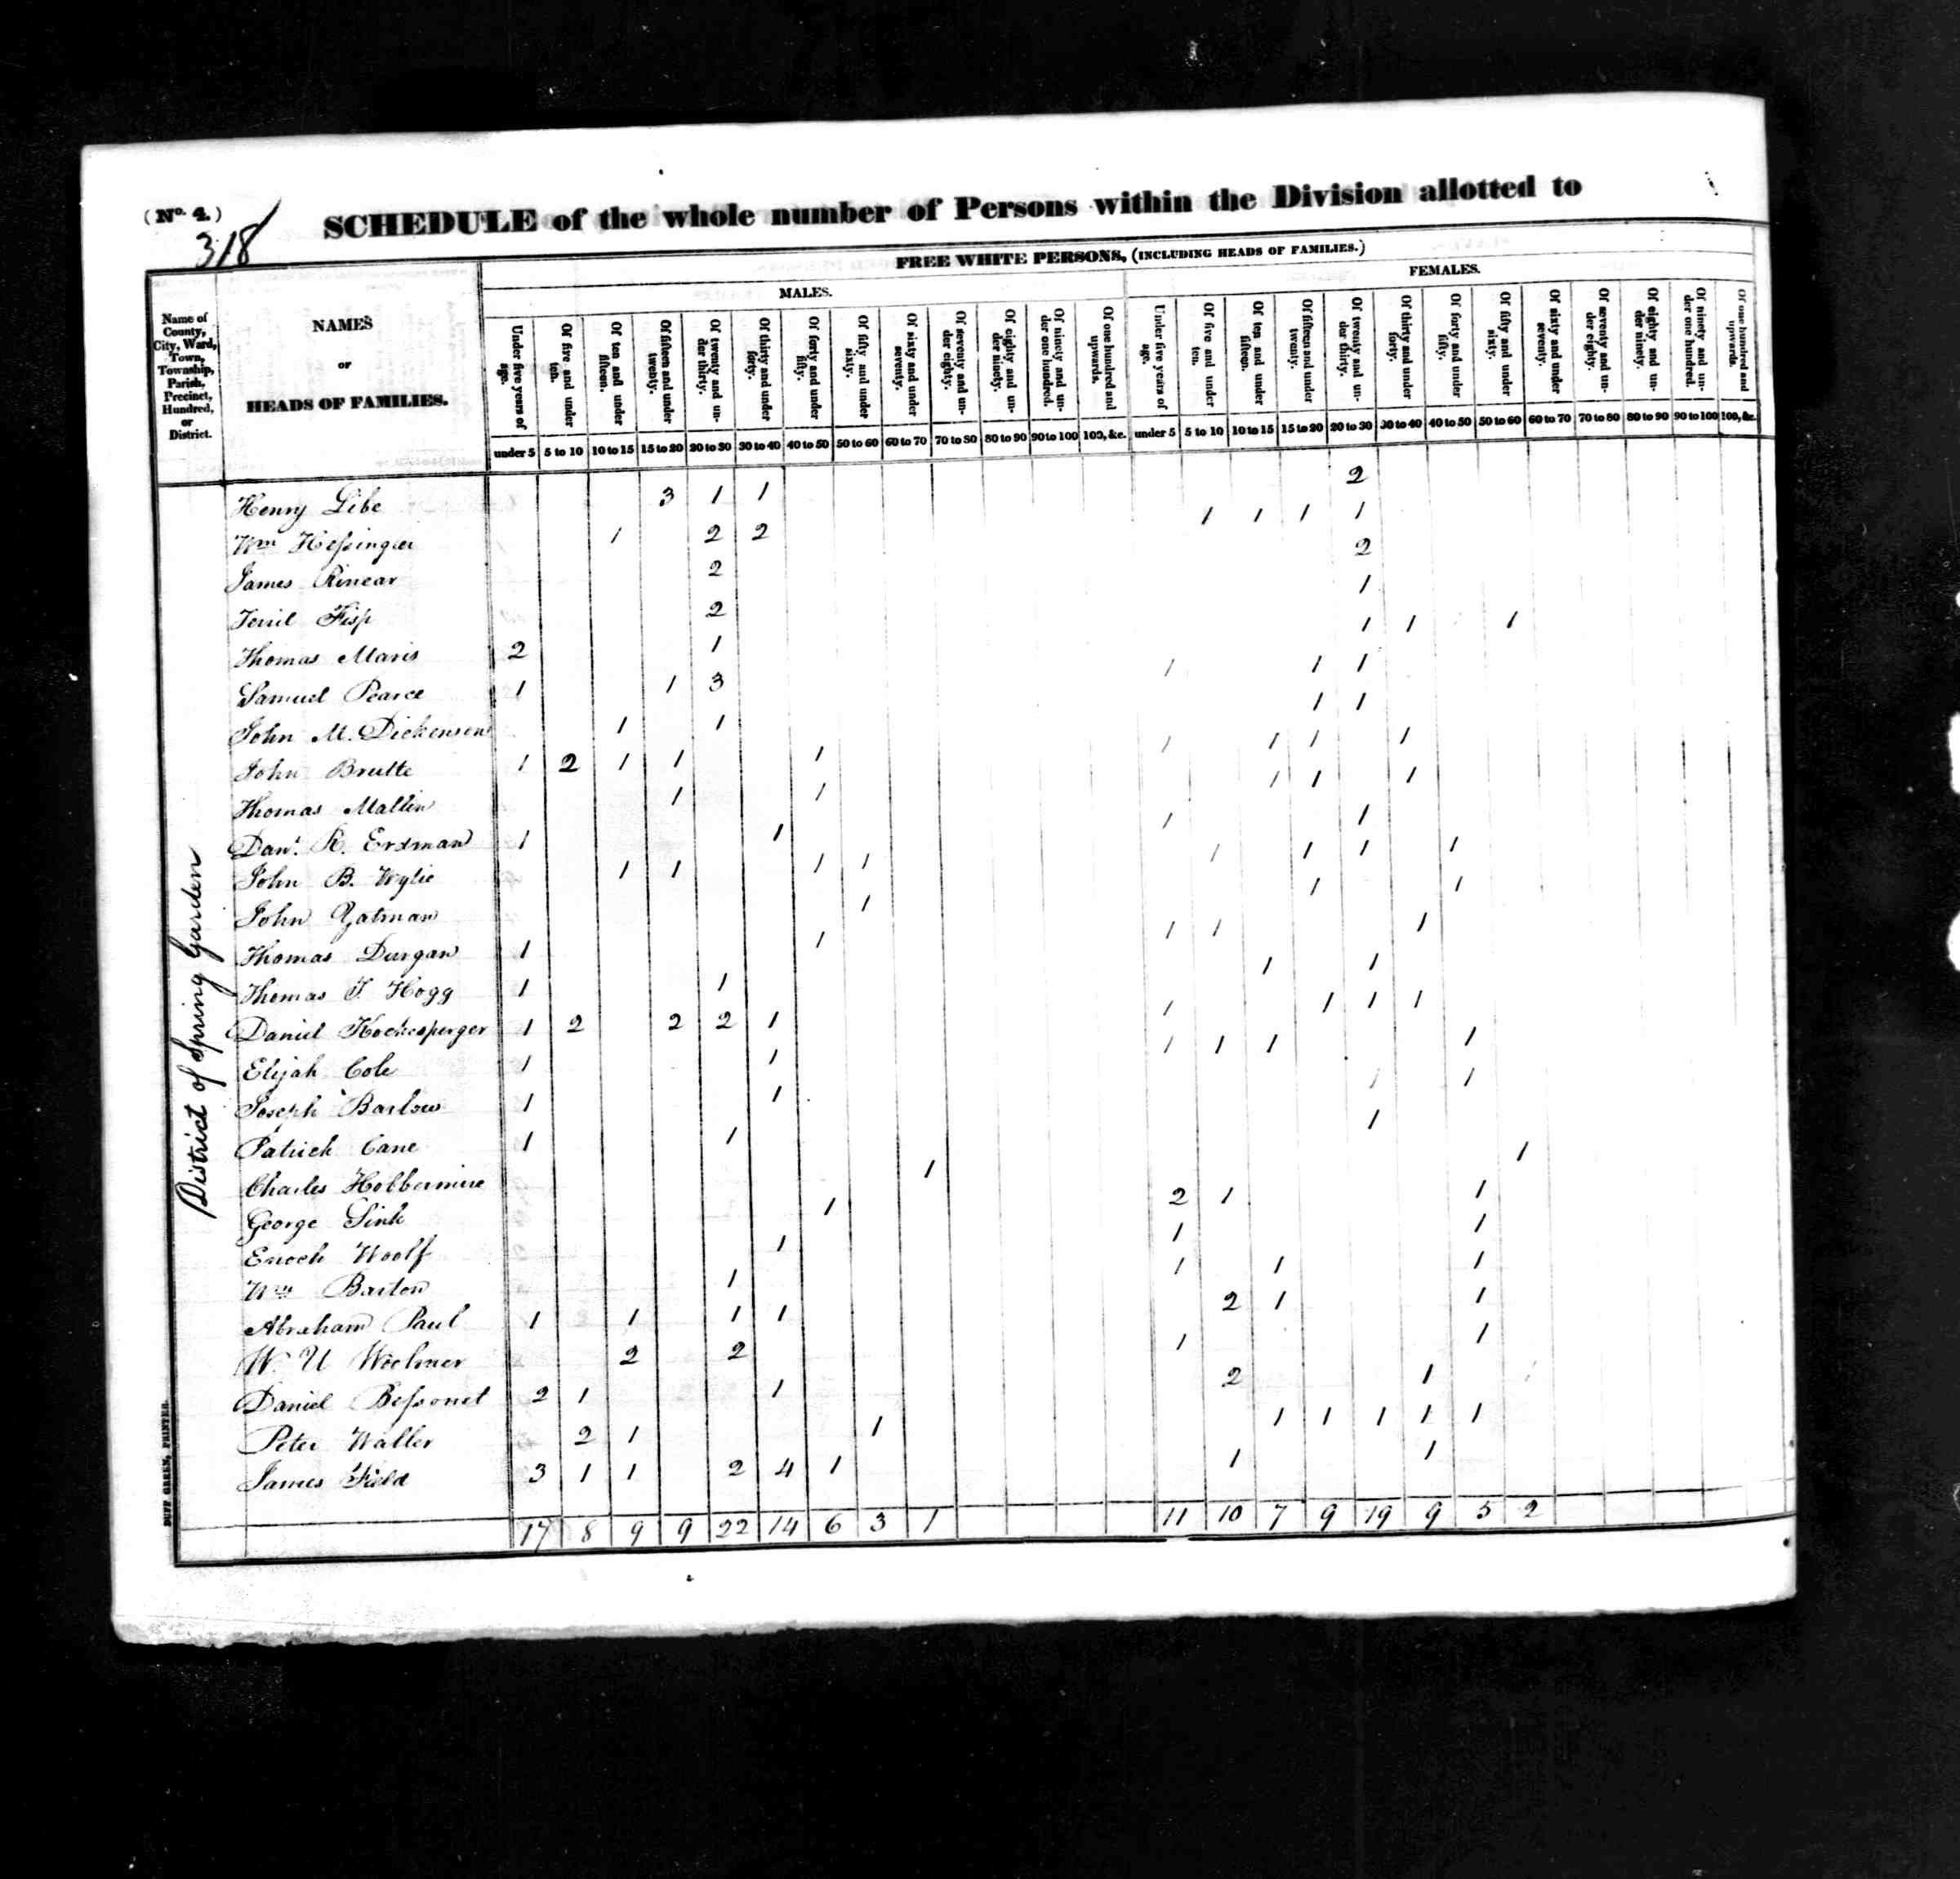 (No. 4.)
318
SCHEDULE of the whole number of Persons within the Division allotted to
FREE WHITE PERSONS, (INCLUDING HEADS OF FAMILIES.)
MALES. FEMALES.
Name of County, City, Ward, Town, Township, Parish, Precinct, Hundred, or District.
NAMES
OR
HEADS OF FAMILIES.
Under five years of age. Of five and under ten. Of ten and under fifteen. Of fifteen and under twenty. Of twenty and under thirty. Of thirty and under forty. Of forty and under fifty. Of fifty and under sixty. Of sixty and under seventy. Of seventy and under eighty. Of eighty and under ninety. Of ninety and under one hundred. Of one hundred and upwards. Under five years of age. Of five and under ten. Of ten and under fifteen. Of fifteen and under twenty. Of twenty and under thirty. Of thirty and under forty. Of forty and under fifty. Of fifty and under sixty. Of sixty and under seventy. Of seventy and under eighty. Of eighty and under ninety. Of ninety and under one hundred. Of one hundred and upwards.
under 5 5 to 10 10 to 15 15 to 20 20 to 30 30 to 40 40 to 50 50 to 60 60 to 70 70 to 80 80 to 90 90 to 100 100, &c. under 5 5 to 10 10 to 15 15 to 20 20 to 30 30 to 40 40 to 50 50 to 60 60 to 70 70 to 80 80 to 90 90 to 100 100, &c.
District of Spring Garden
Henry Libe 3 1 1 2
Wm Hessinger 1 2 2 1 1 1 1
James Rinear 2 2
Fisp 2 1
Thomas Maris 2 1 1 1 1
Samuel Pearce 1 1 3 1 1 1
John M. Dickenson 1 1 1 1
John Brutte 1 2 1 1 1 1 1 1 1
Thomas Mallin 1 1 1 1 1
Danl. R. Erdman 1 1 1 1
John B. Wylie 1 1 1 1 1 1 1 1
John Yatman 1 1 1
Thomas Durgan 1 1 1 1 1
Thomas T. Hogg 1 1 1 1
Daniel Hockesperger 1 2 2 2 1 1 1 1 1
Elijah Cole 1 1 1 1 1 1
Joseph Barlow 1 1 1 1
Patrick Cane 1 1 1
Charles Hobbermire 1 1
George Sink 1 2 1 1
Enoch Woolf 1 1 1
Wm Barton 1 1 1 1
Abraham Paul 1 1 1 1 2 1 1
W. U Woelmer 2 2 1 1
Daniel Bessonet 2 1 1 2 1
Peter Waller 2 1 1 1 1 1 1 1
James Field 3 1 1 2 4 1 1 1
17 8 9 9 22 14 6 3 1 11 10 7 9 19 9 5 2
DUFF GREEN, PRINTER.